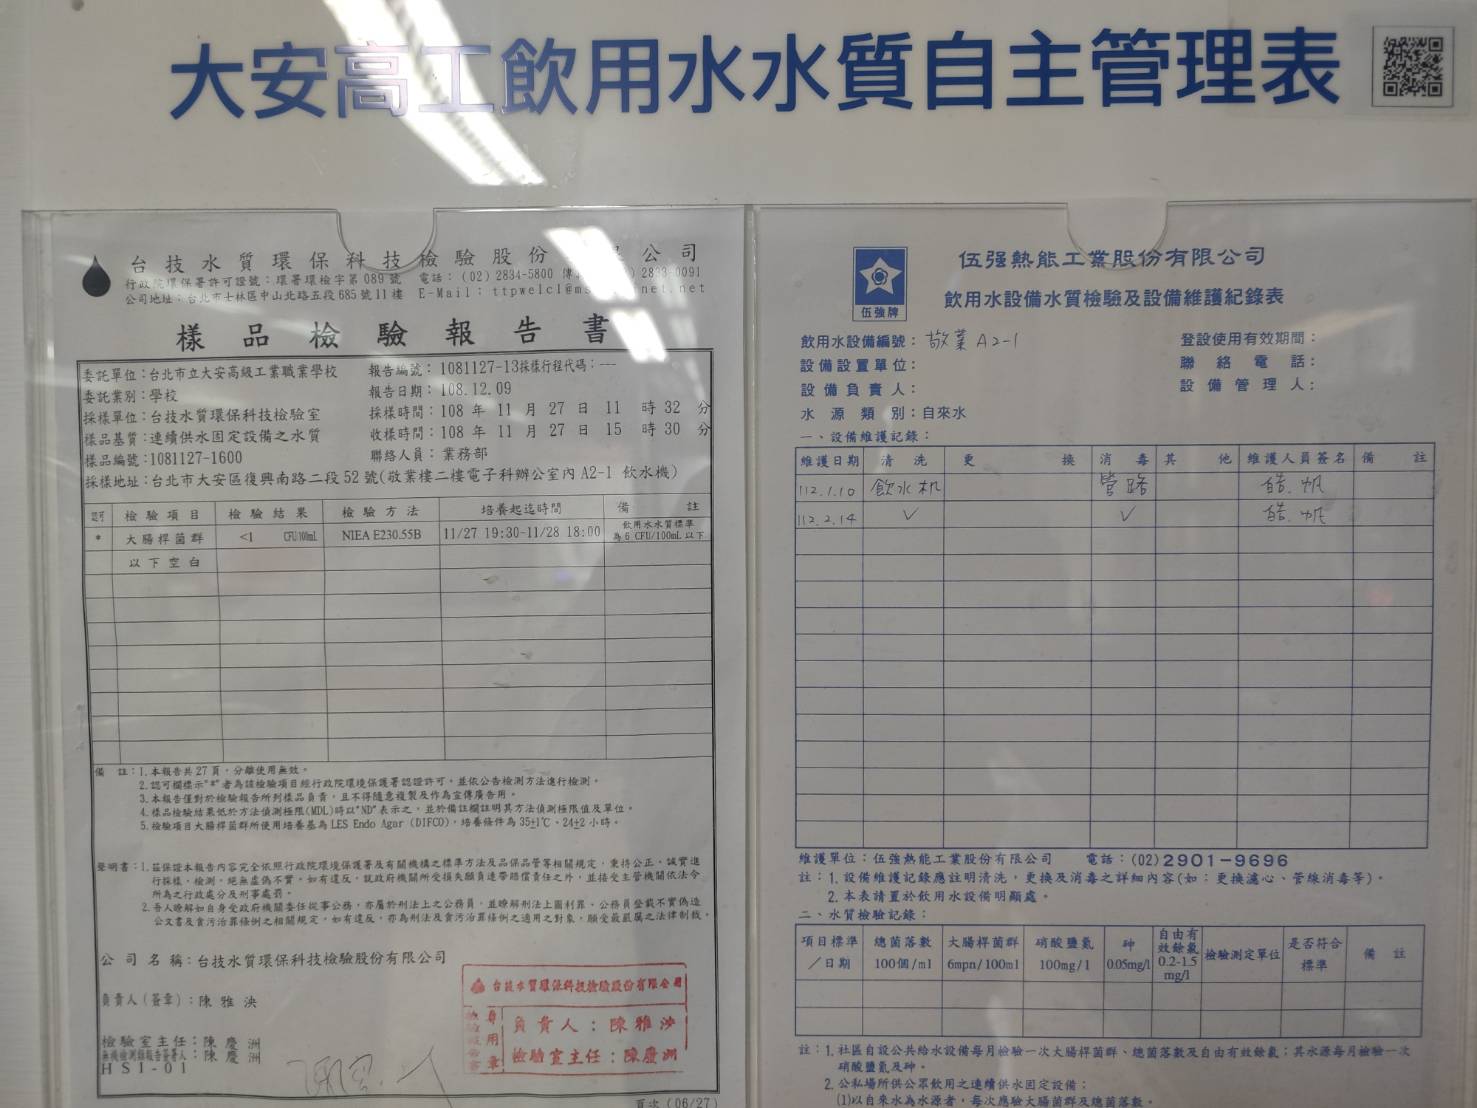 大安高工飲用水水質自主管理表
台技水質環保科技檢驗股份 公司
行政院環保署許可證號：環署環檢字第089號 電話：(02)2834-5800 2833-0091
公司地址：台北市士林區中山北路五段685號11樓 E-Mail：ttpwelcl@ms net.net
樣品檢驗報告書
委託單位：台北市立大安高級工業職業學校 報告編號：1081127-13採樣行程代碼：---
委託業別：學校 報告日期：108.12.09
採樣單位：台技水質環保科技檢驗室 採樣時間：108 年 11 月 27 日 11 時 32 分
樣品基質：連續供水固定設備之水質 收樣時間：108 年 11 月 27 日 15 時 30 分
樣品編號：1081127-1600 聯絡人員：業務部
採樣地址：台北市大安區復興南路二段52號(敬業樓二樓電子科辦公室內 A2-1 飲水機)
認可 檢驗項目 檢驗結果 檢驗方法 培養起迄時間 備註
* 大腸桿菌群 <1 CFU/100mL NIEA E230.55B 11/27 19:30-11/28 18:00 飲用水水質標準為 6 CFU/100mL 以下
以下空白
備 註：1.本報告共27頁，分離使用無效。
2.認可欄標示"*"者為該檢驗項目經行政院環境保護署認證許可，並依公告檢測方法進行檢測。
3.本報告僅對於檢驗報告所列樣品負責，且不得隨意複製及作為宣傳廣告用。
4.樣品檢驗結果低於方法偵測極限(MDL)時以"ND"表示之，並於備註欄註明其方法偵測極限值及單位。
5.檢驗項目大腸桿菌群所使用培養基為 LES Endo Agar (DIFCO)，培養條件為 35±1℃、24±2 小時。
聲明書：1.茲保證本報告內容完全依照行政院環境保護署及有關機構之標準方法及品保品管等相關規定，秉持公正、誠實進
行採樣、檢測。絕無虛偽不實，如有違反，就政府機關所受損失願負連帶賠償責任之外，並接受主管機關依法令
所為之行政處分及刑事處罰。
2.吾人瞭解如自身受政府機關委任從事公務，亦屬於刑法上之公務員，並瞭解刑法上圖利罪、公務員登載不實偽造
公文書及貪污治罪條例之相關規定，如有違反，亦為刑法及貪污治罪條例之適用之對象，願受最嚴厲之法律制裁。
公司名稱：台技水質環保科技檢驗股份有限公司
負責人(簽章)：陳雅泱
檢驗室主任：陳慶洲
無機檢測類報告簽署人：陳慶洲
HS1-01
台技水質環保科技檢驗股份有限公司
專用章
負責人：陳雅泱
檢驗室主任：陳慶洲
頁次(06/27)
伍強牌
伍强熱能工業股份有限公司
飲用水設備水質檢驗及設備維護紀錄表
飲用水設備編號：敬業 A2-1 登設使用有效期間：
設備設置單位： 聯絡電話：
設備負責人： 設備管理人：
水源類別：自來水
一、設備維護記錄：
維護日期 清洗 更換 消毒 其他 維護人員簽名 備註
112.1.10 飲水机 管路
112.2.14 ✓ ✓
維護單位：伍強熱能工業股份有限公司 電話：(02)2901-9696
註：1.設備維護記錄應註明清洗，更換及消毒之詳細內容(如：更換濾心、管線消毒等)。
2.本表請置於飲用水設備明顯處。
二、水質檢驗記錄：
項目標準／日期 總菌落數 100個/ml 大腸桿菌群 6mpn/100ml 硝酸鹽氮 100mg/l 砷 0.05mg/l 自由有效餘氯 0.2-1.5 mg/l 檢驗測定單位 是否符合標準 備註
註：1.社區自設公共給水設備每月檢驗一次大腸桿菌群、總菌落數及自由有效餘氯；其水源每月檢驗一次
硝酸鹽氮及砷。
2.公私場所供公眾飲用之連續供水固定設備：
(1)以自來水為水源者，每次應驗大腸菌群及總菌落數。